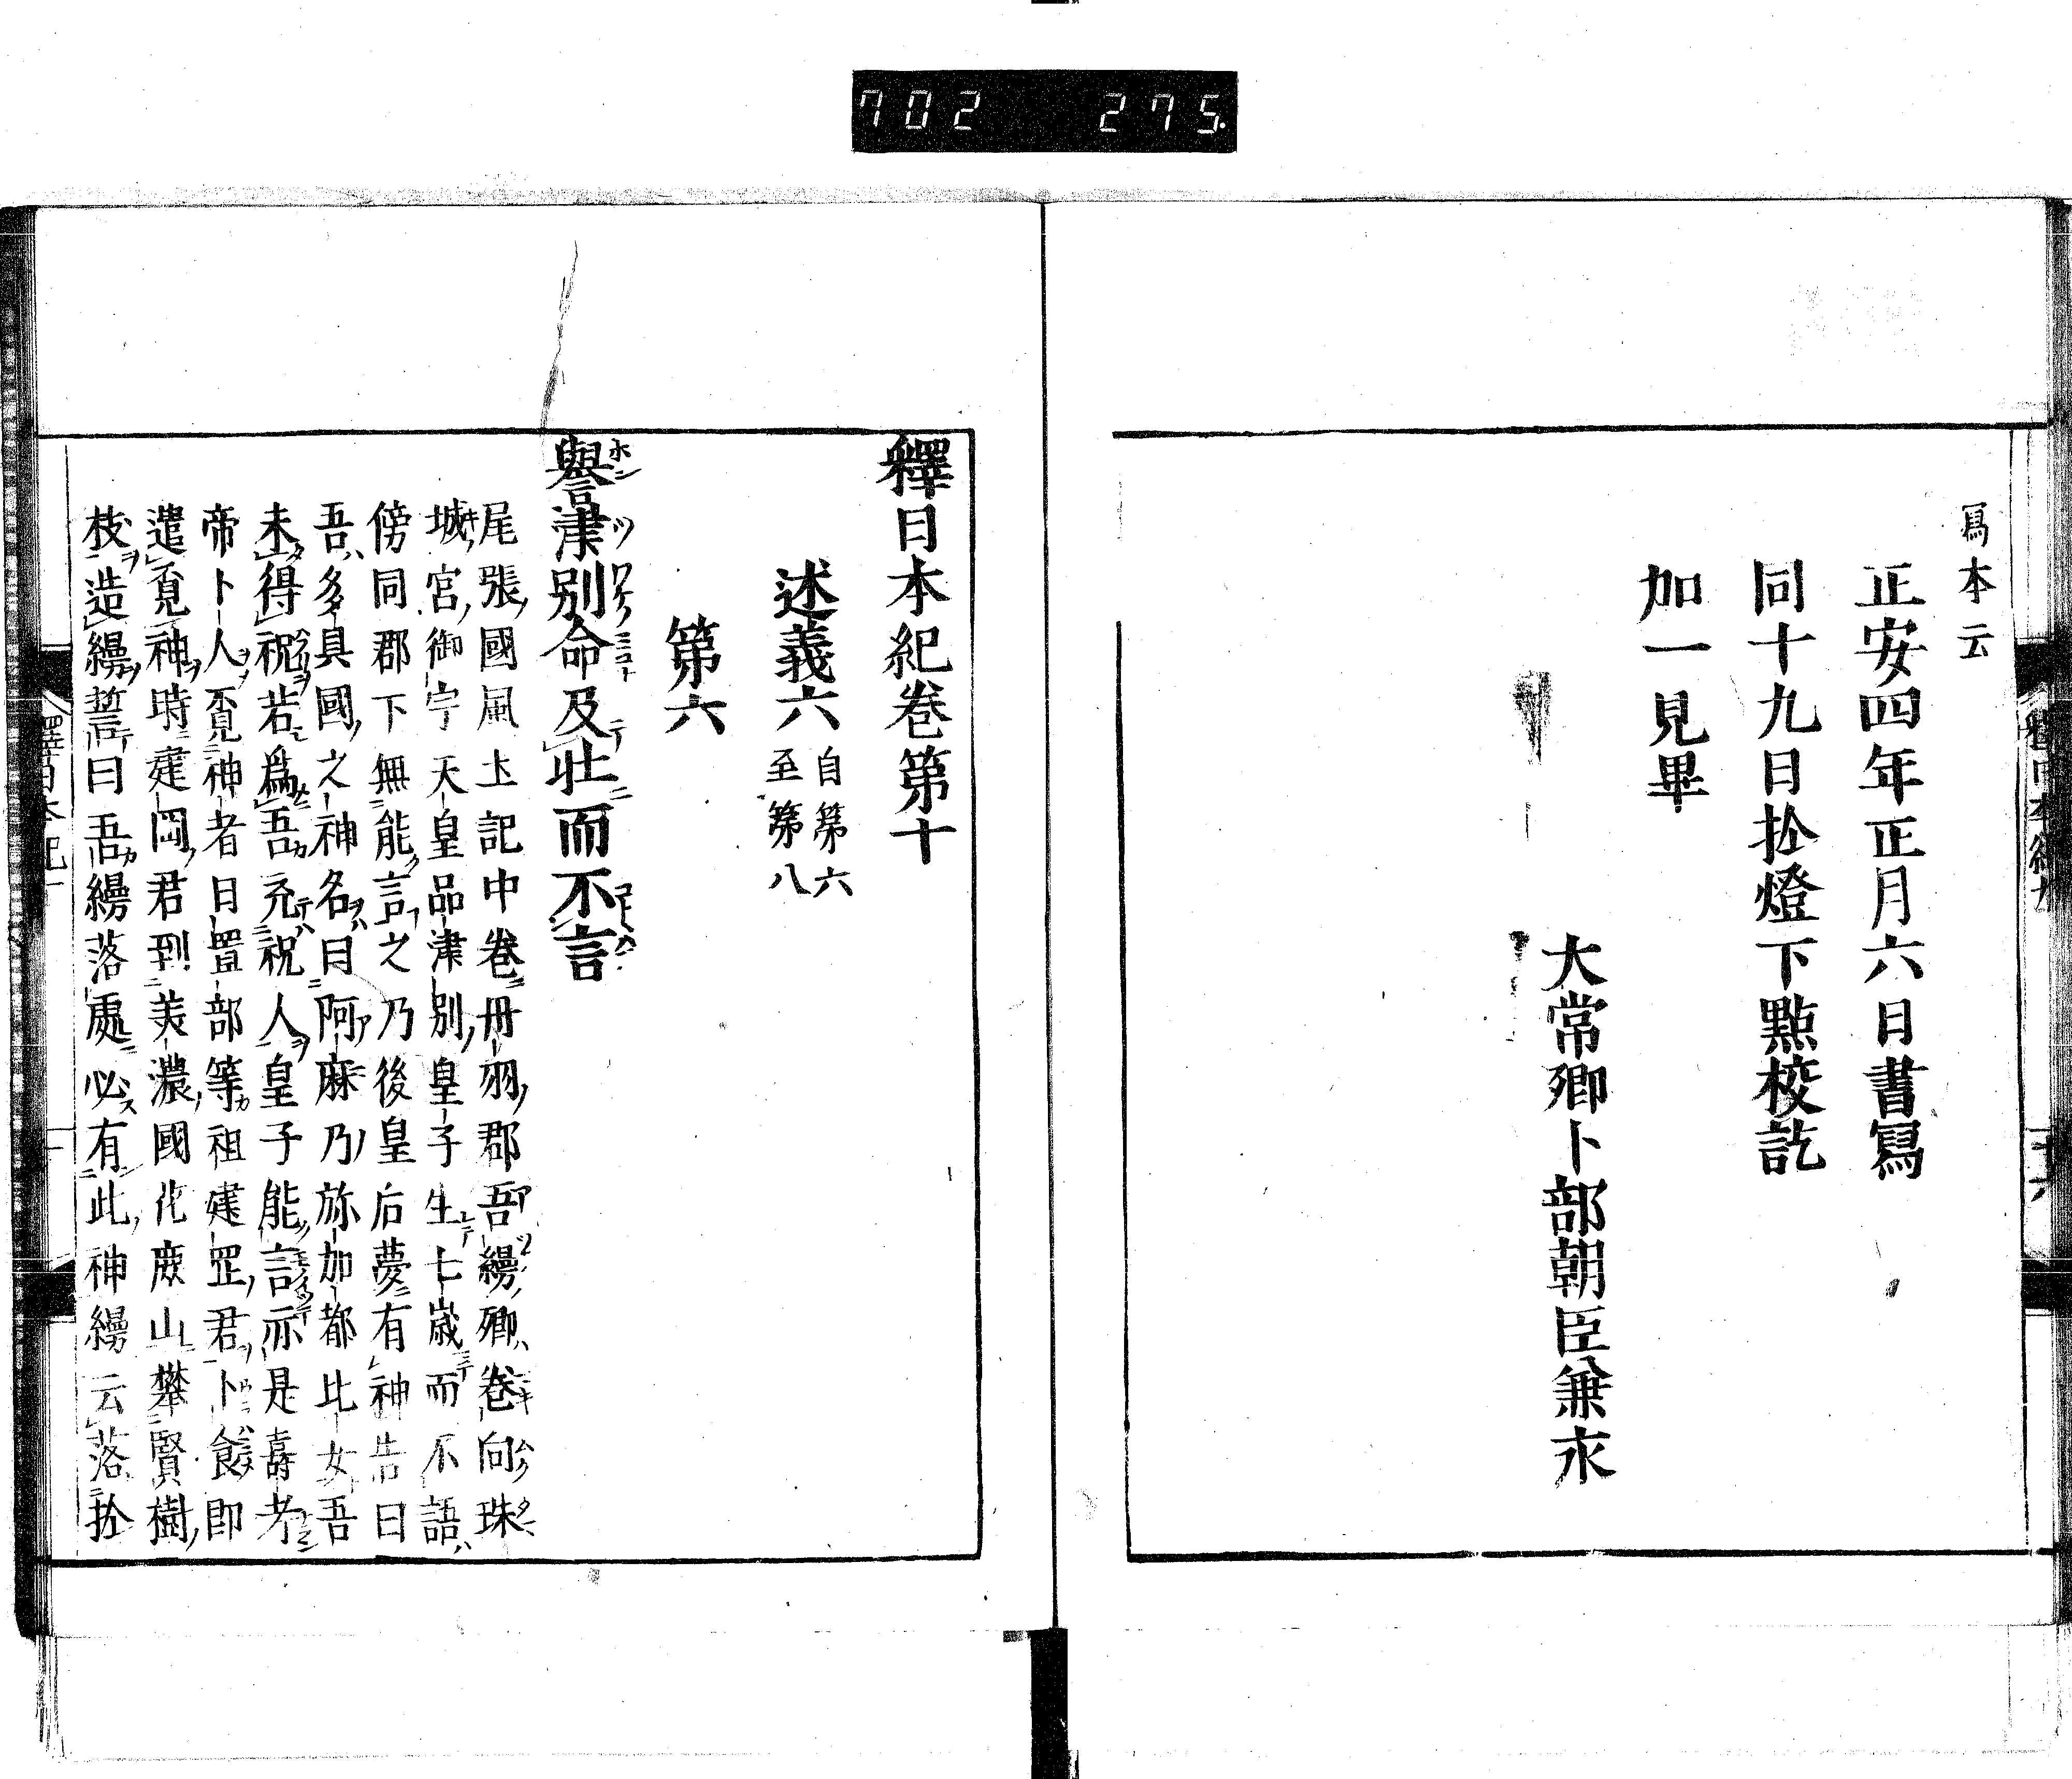 702 275
寫本云
正安四年正月六日書寫
同十九日扵燈下點校訖
加一見畢
大常卿卜部朝臣兼永
釋日本紀巻第十
述義六 自第六
至第八
第六
譽津別命及壮而不言
尾張國風土記中巻丹羽郡吾縵郷巻向珠
城宮御宇天皇品津別皇子生七歳而不語
傍同郡下無能言之乃後皇后夢有神告曰
吾多具國之神名曰阿麻乃弥加都比女吾
未得祝若爲吾充祝人皇子能言亦是壽考
帝卜人覔神者日置部等祖建罡君卜食即
遣覔神時建岡君到美濃國花鹿山攀賢樹
枝造縵誓曰吾縵落處必有此神縵云落扵